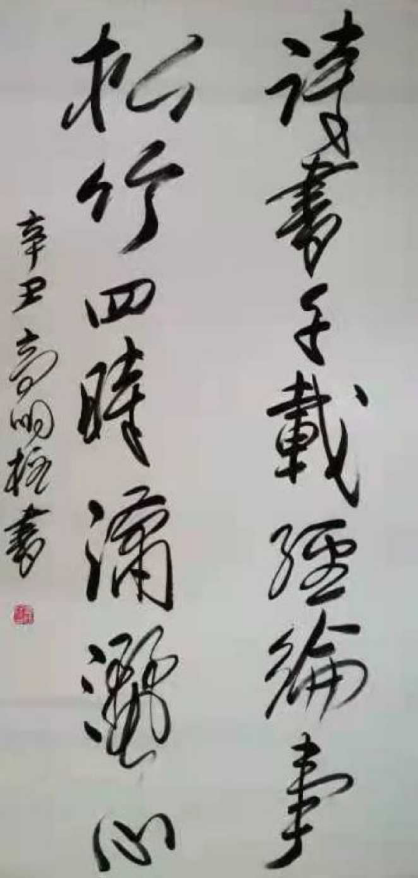 詩書千載經綸事
松竹四時瀟灑心
辛丑高明書